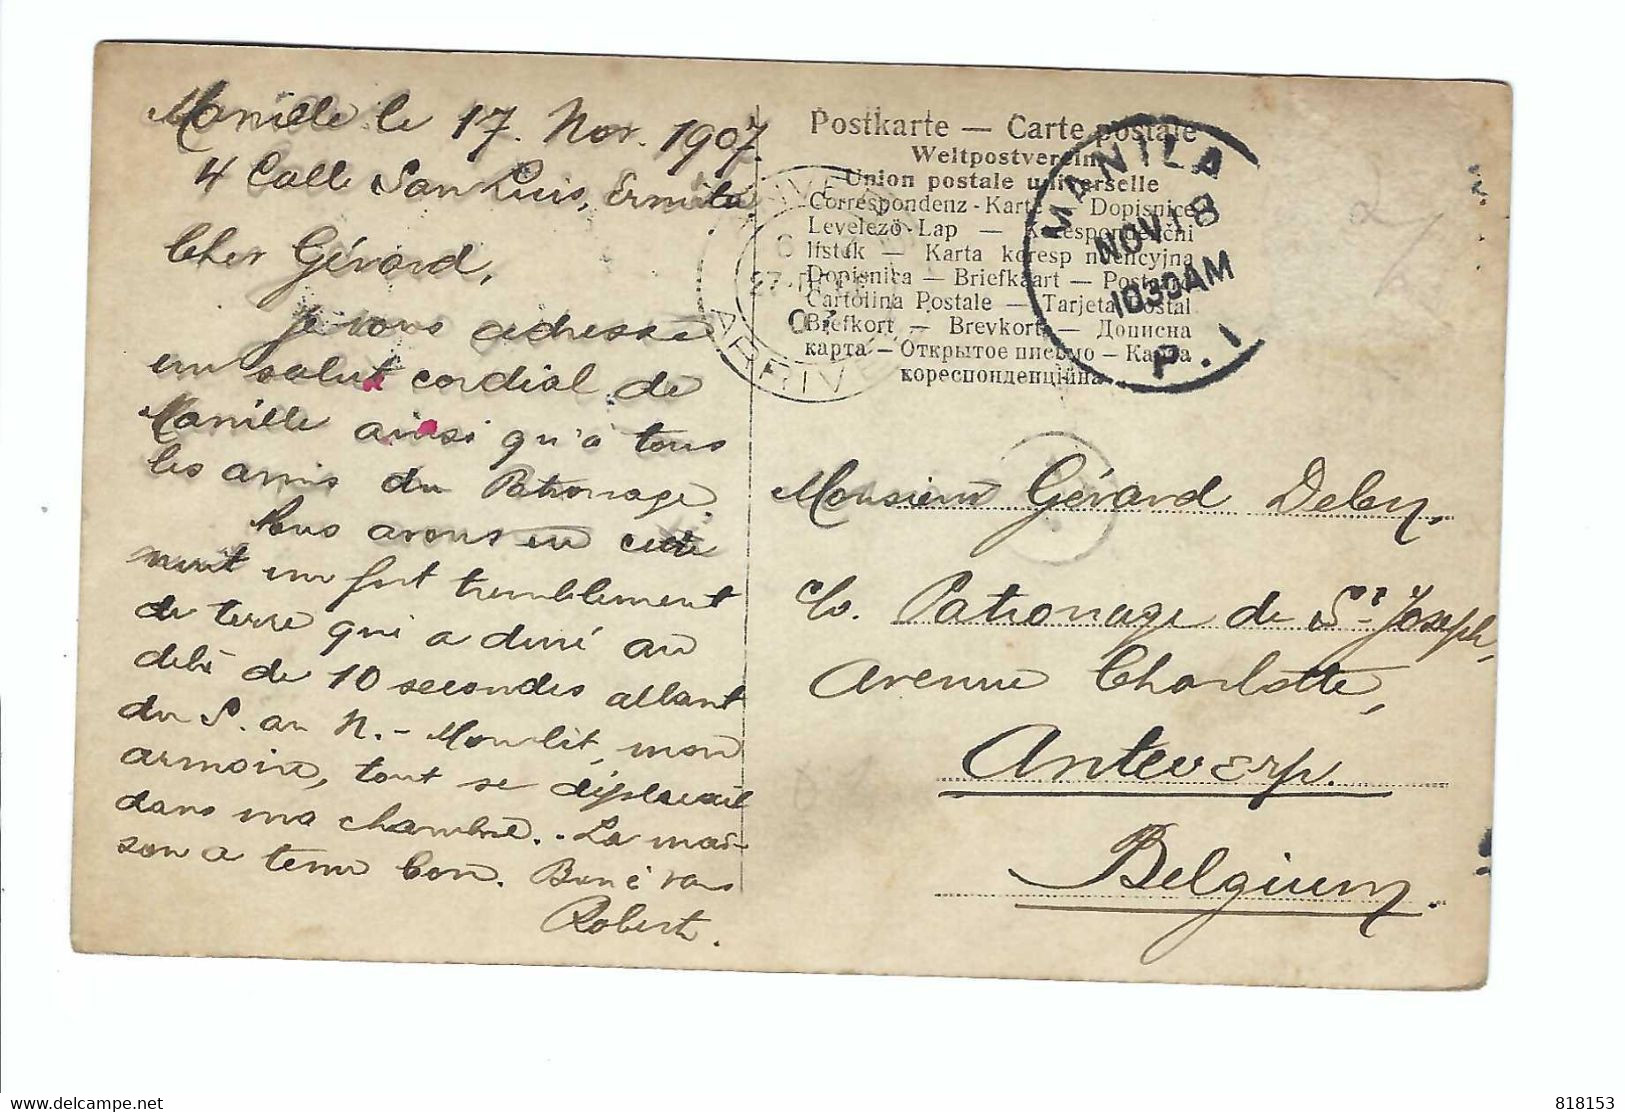 Manille le 17. Nov. 1907.
4 Calle San Luis, Ermita
Cher Gérard,
Je vous adresse
un salut cordial de
Manille ainsi qu'à tous
les amis du Patronage.
Nous avons eu cette
nuit un fort tremblement
de terre qui a duré au
delà de 10 secondes allant
du S. au N. - Mon lit, mon
armoire, tout se déplaçait
dans ma chambre. - La mai-
son a tenu bon. Bien à vous
Robert.
Postkarte — Carte postale
Weltpostverein
Union postale universelle
Correspondenz-Karte — Dopisnice
Levelező-Lap — Korespondenční
lístek — Karta koresp ndencyjna
Dopisnica — Briefkaart — Postal
Cartolina Postale — Tarjeta Postal
Brefkort — Brevkort — Дописна
карта — Открытое письмо — Карта
кореспонденційна
MANILA
NOV 18
1030AM
P. I
27
07
Monsieur Gérard
c/o. Patronage de St. Joseph,
Avenue Charlotte,
Antwerp.
Belgium.
delcampe.net
818153